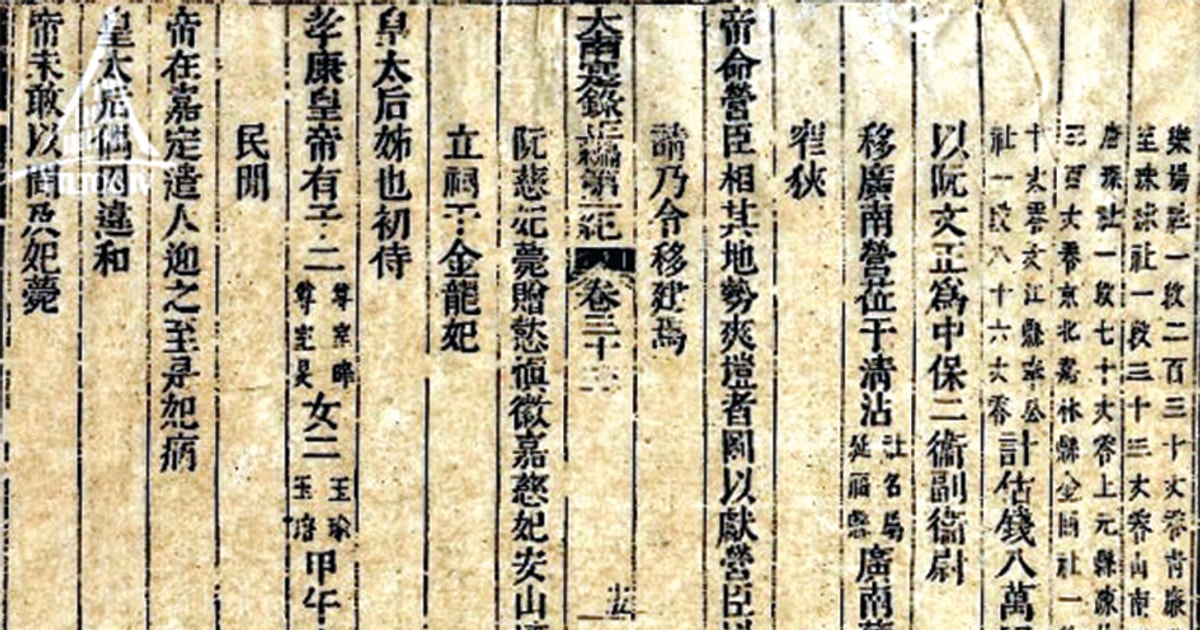 社一段二百三十丈零青廉
至珠球社一段三十三丈零山南
社一段七十丈零上元縣
三百丈零京北嘉林縣金關社一
十丈零文江縣
社一段八十六丈零
計估錢八萬
以阮文正為中保二衛副衛尉
移廣南營莅于清沾
社名屬
延福縣
廣南
窄狹
帝命營臣相其地勢爽塏者圖以獻營臣以
請乃令移建焉
大南寔錄正編第一紀 卷三十
阮慈妃薨贈慈慎徽嘉慈妃安山
立祠于金龍妃
皇太后姊也初侍
孝康皇帝有子二
尊室
尊室昊
女二
玉瑜
玉
甲午
民間
帝在嘉定遣人迎之至是妃病
皇太后偶因違和
帝未敢以聞及妃薨